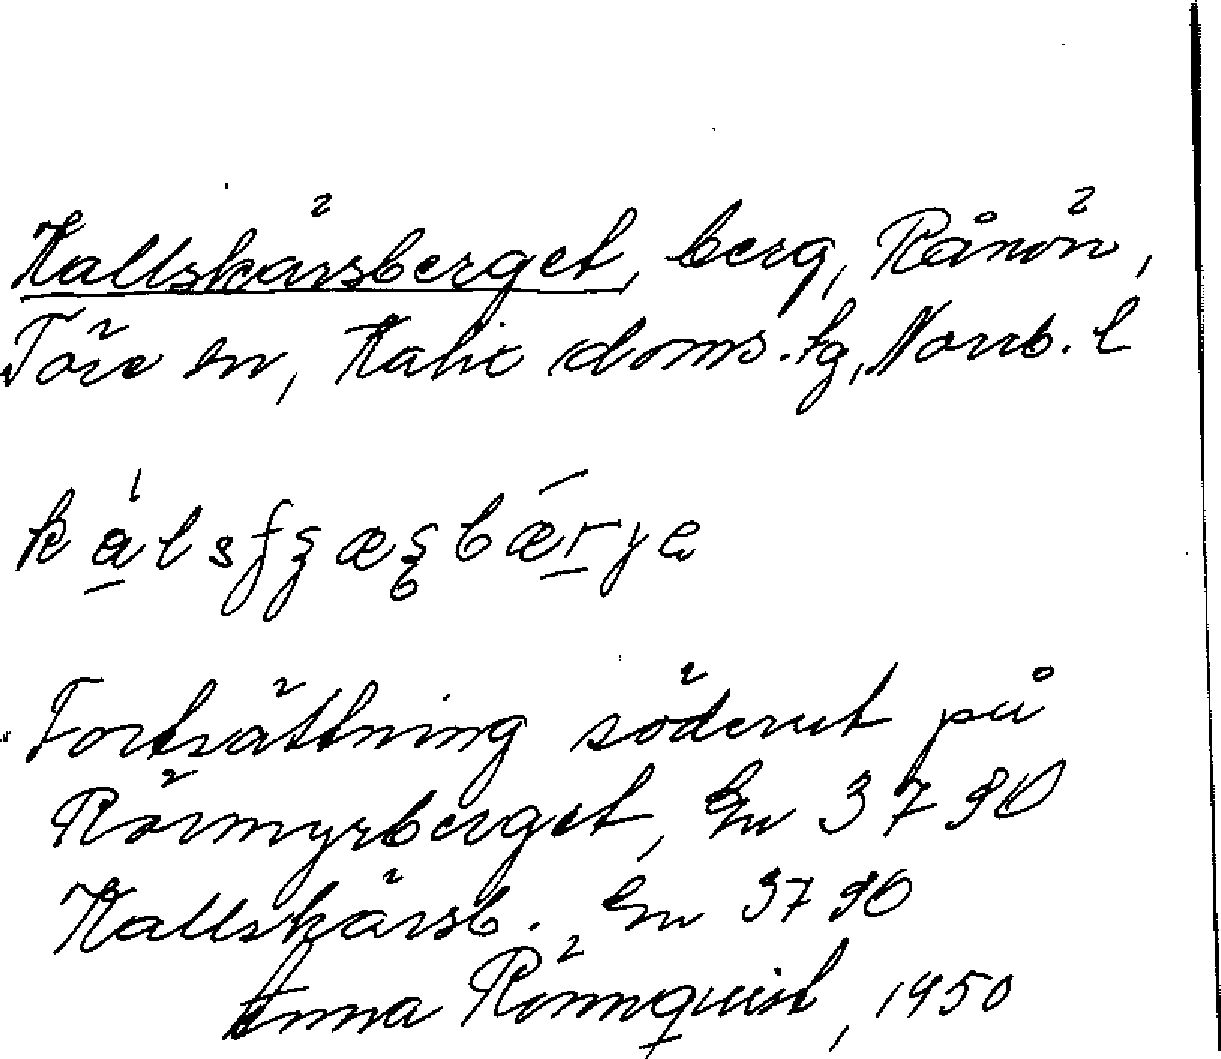 Kallskärsberget, berg, Rånön,
Töre sn, Kalix doms. tg, Norrb. l
Fortsättning söderut på
Rörmyrberget, En 3790
Kallskärsb. En 3790
Anna Rönnquist, 1950